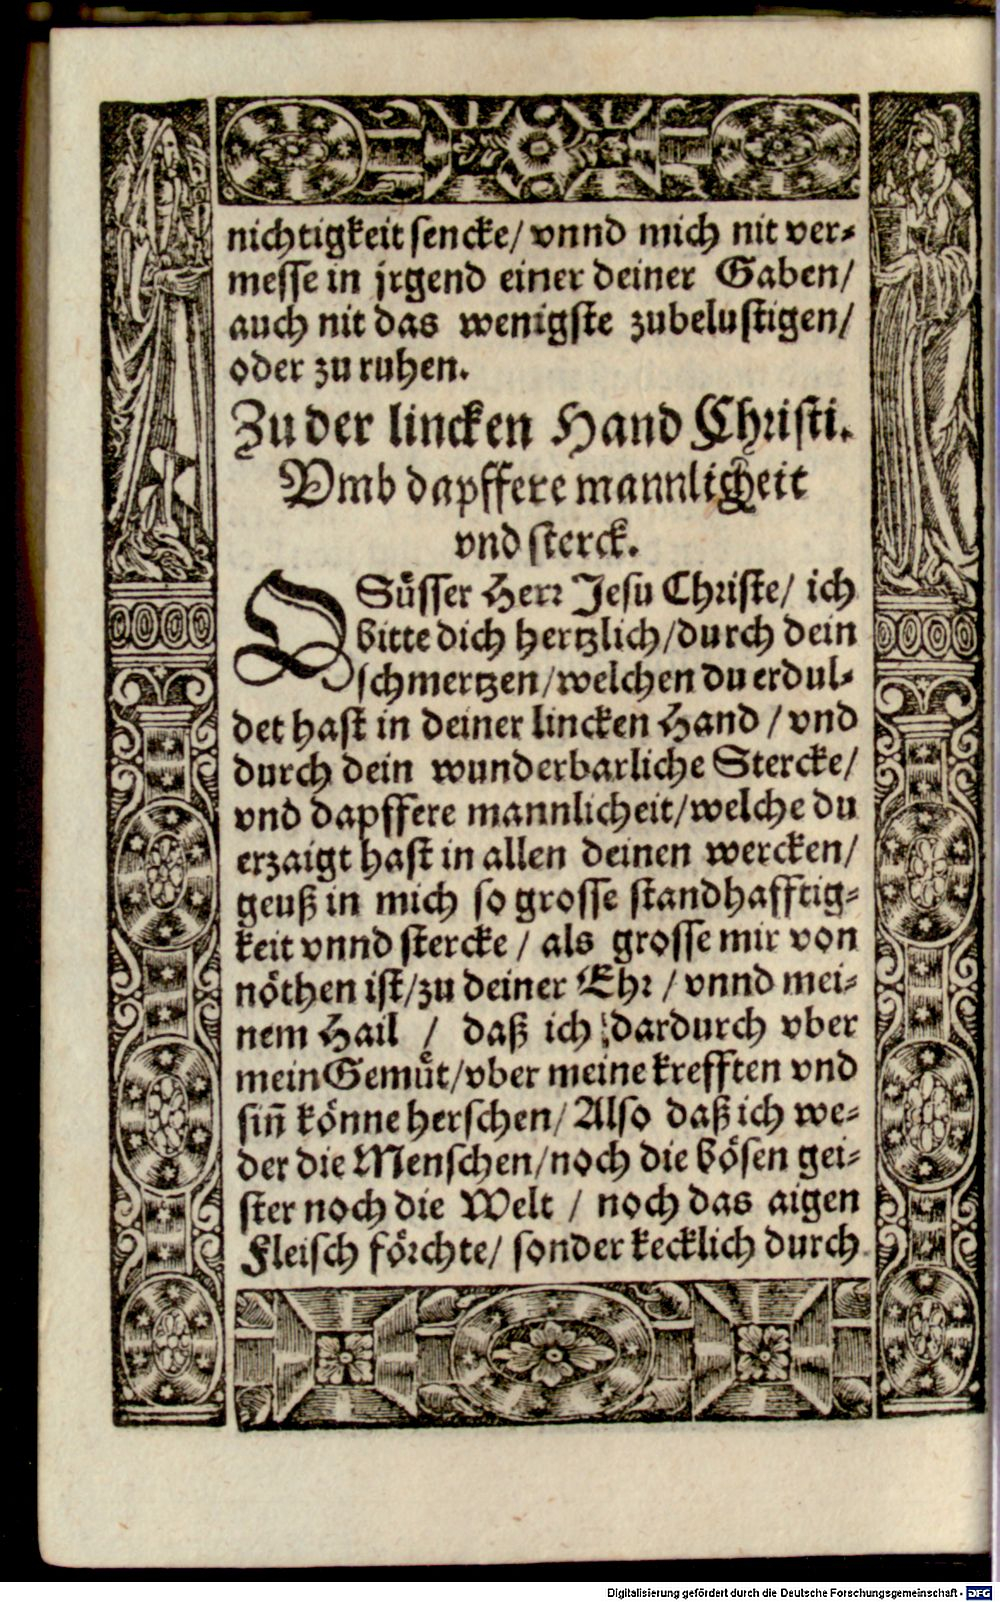 nichtigkeit sencke/ vnnd mich nit ver-
messe in jrgend einer deiner Gaben/
auch nit das wenigste zubelustigen/
oder zu ruhen.
Zu der lincken Hand Christi.
Vmb dapffere mannlicheit
vnd sterck.
O Süsser Herr Jesu Christe/ ich
bitte dich hertzlich/durch dein
schmertzen/welchen du erdul-
det hast in deiner lincken Hand / vnd
durch dein wunderbarliche Stercke/
vnd dapffere mannlicheit/welche du
erzaigt hast in allen deinen wercken/
geuß in mich so grosse standhafftig-
keit vnnd stercke / als grosse mir von
nöthen ist/zu deiner Ehr / vnnd mei-
nem Hail / daß ich dardurch vber
mein Gemüt/vber meine krefften vnd
sin̄ könne herschen/ Also daß ich we-
der die Menschen/noch die bösen gei-
ster noch die Welt / noch das aigen
Fleisch förchte/ sonder kecklich durch
Digitalisierung gefördert durch die Deutsche Forschungsgemeinschaft - DFG